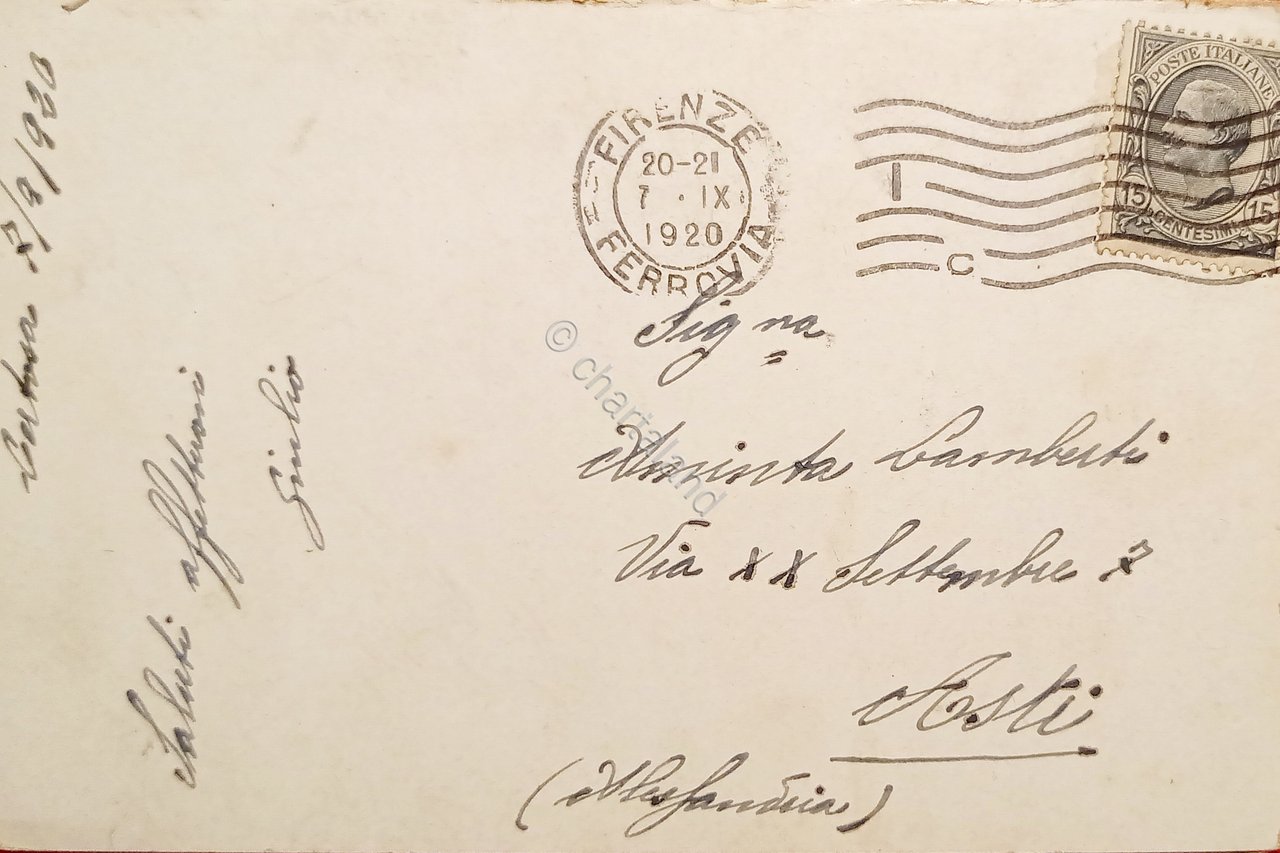 7/9/1920
Saluti affettuosi
Giulio
FIRENZE
20-21
7 · IX
1920
FERROVIA
I
C
POSTE ITALIANE
15 15
CENTESIMI
Sig na
Aminta Lamberti
Via XX Settembre 7
Asti
(Alessandria)
© chartaland